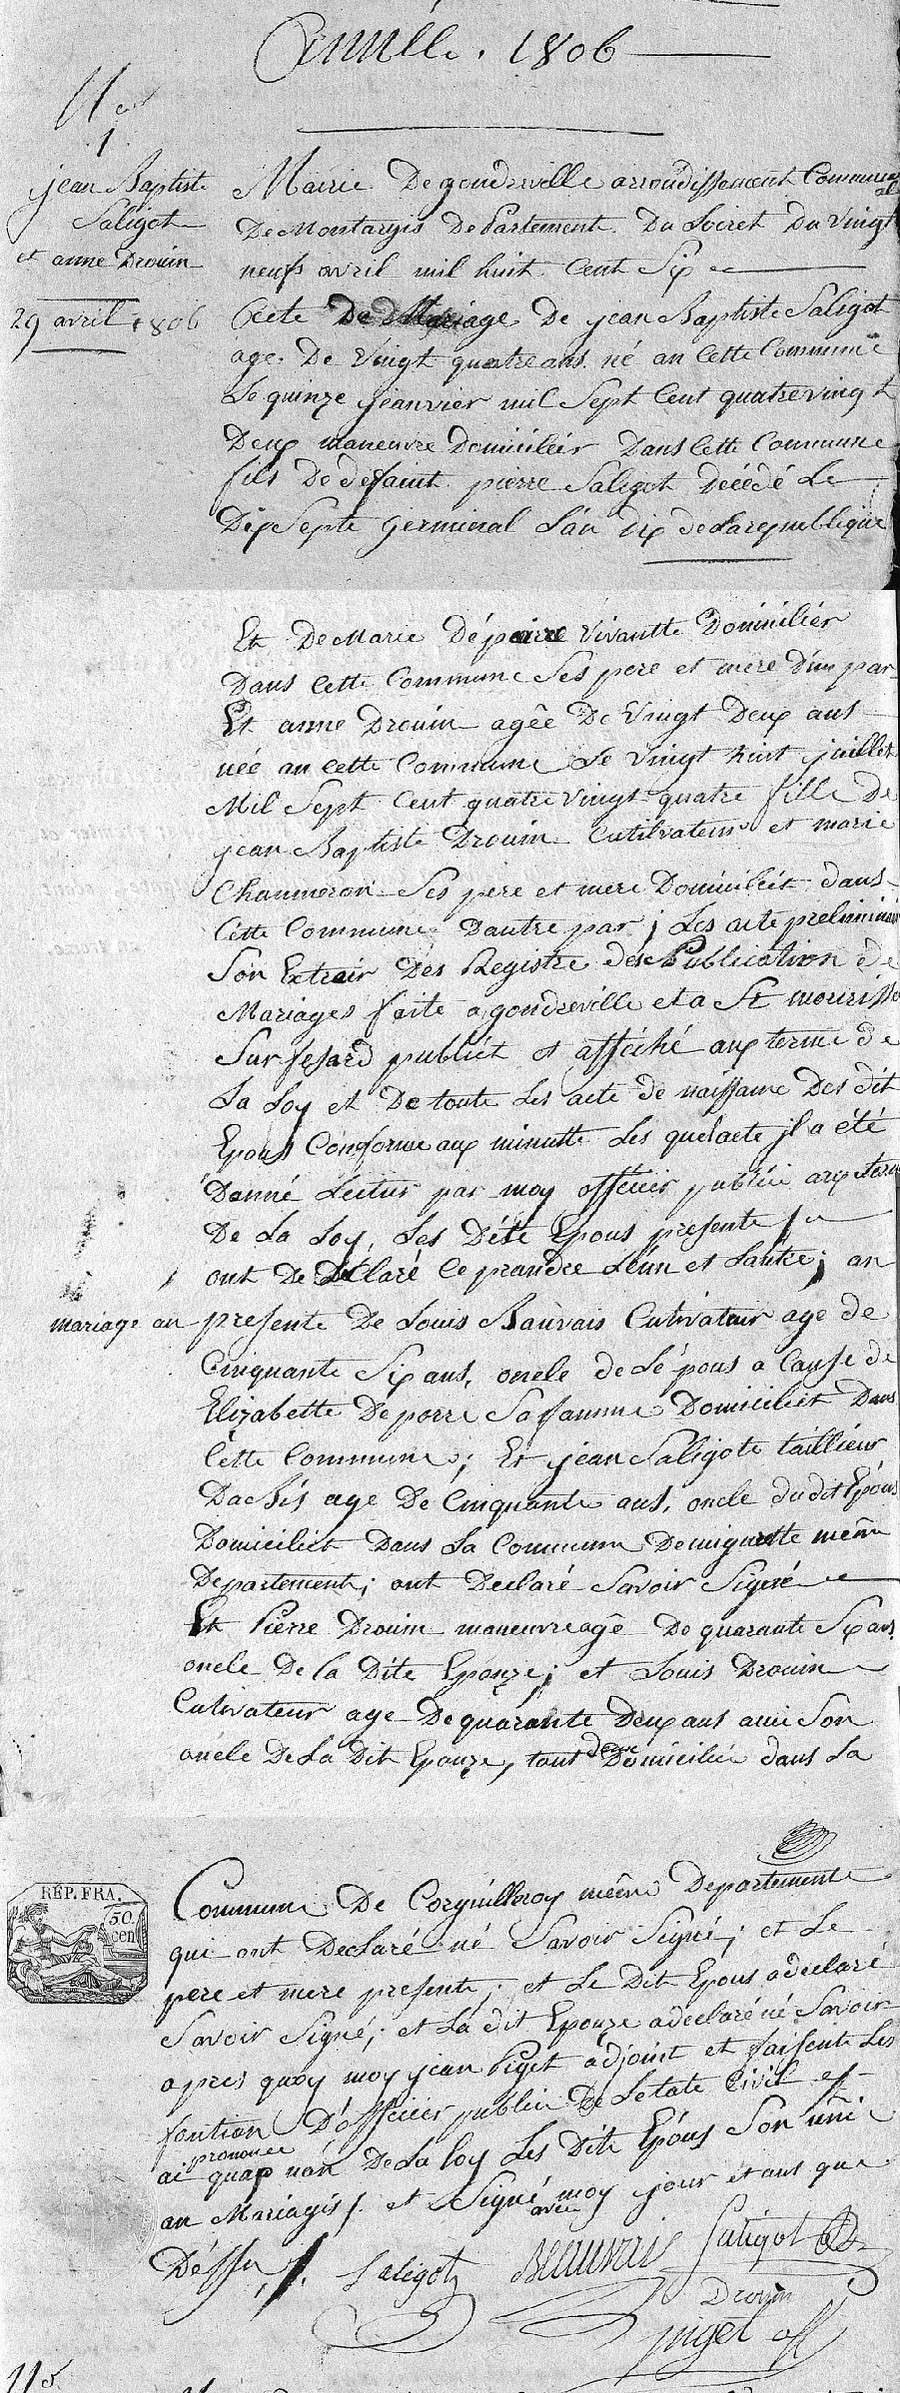 Année. 1806
Nor
1.
jean Baptiste
Saligot
et anne Drouin
29 avril 1806
Mairie De gondreville arrondissement Communal
De Montargis Departement Du Loiret Du Vingt
neufs avril mil huit Cent Six
Acte De Mariage De jean Baptiste Saligot
age De Vingt quatre ans né an Cette Commune
Le quinze jeanvier mil Sept Cent quatrevingt
Deux maneuvre Domiciliér Dans Cette Commune
fils De defaint pierre Saligot Décédé Le
Dix Septe germinal L'an dix de Larepublique
Et De Marie Dépoirre Vivantte Domiciliér
Dans Cette Commune Ses pere et mere D'un par
Et anne Drouin agée De Vingt Deux ans
née an Cette Commune Le Vingt huit juillet
Mil Sept Cent quatre Vingt quatre fille De
jean Baptiste Drouin Cutilvateur et marie
Chaumeron Ses pere et mere Domiciliét dans
Cette Commune Dautre par ; Les acte preliminair
Son Extrair Des Registre des Publication de
Mariages faite a gondreville et a St mourisse
Sur fesard publiét et afféché aux terme de
La Loy et De toute Les acte de naissance Des dit
Epous Conforme aux minutte Les quel acte jl a été
Donné Lectur par moy officiér publici aux terme
De La Loy, Les Déte Epous presente
ont De Déclaré Ce prandre L'un et Lautre; an
mariage an presente De Louis Bauvais Cutivateur age de
Cinquante Six ans, oncle de Lépous a Cause de
Elizabette Deporre Sa famme Domiciliét Dans
Cette Commune; Et jean Saligote taillieur
Dachis age De Cinquante ans, oncle dudit Epous
Domiciliét Dans La Commune Demignette même
Departement; ont Declaré Savoir Signé
Et Pierre Drouin maneuvre agé De quarante Six ans
oncle De la Dite Epouze; et Louis Drouin
Cutivateur age De quarante Deux ans aussi Son
oncle De La Dit Epouze, tout deux Domiciliée dans La
RÉP. FRA.
50.
cen
Commune De Corquilleroy même Departemente
qui ont Declaré né Savoir Signé; et Le
pere et mere presente; et Le Dit Epous a declaré
Savoir Signé; et La dit Epouze a declaré né Savoir
apres quoy moy jean Piget adjoint et faisent Les
fontion D'officiér publici De Letate Civil et
ai prononce quap nón De La Loy Les Dite Epóus Son uni
an Mariagis et Signé avec moy jour et ans que
Déssu Saligot Beauvais Saligot
Drouin
piget off